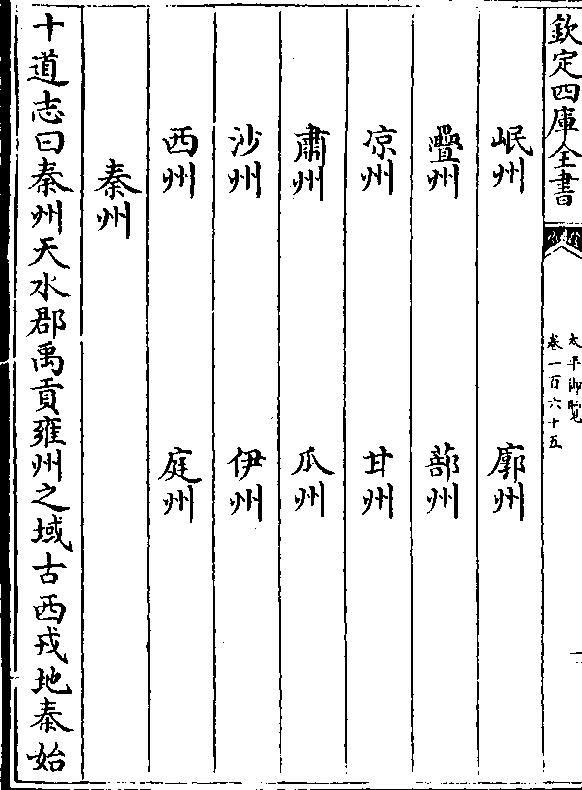 欽定四庫全書
太平御覧
卷一百六十五
一
岷州　廓州
疊州　蔀州
凉州　甘州
肅州　瓜州
沙州　伊州
西州　庭州
秦州
十道志曰秦州天水郡禹貢雍州之域古西戎地秦始